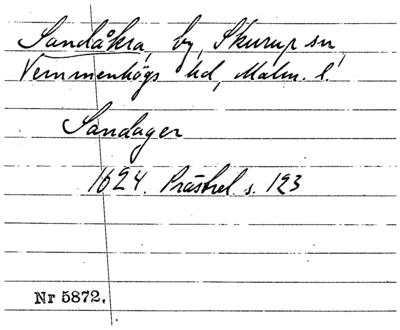 Sandåkra, by, Skurup sn,
Vemmenhögs hd, Malm. l.
Sandager
1624. Prästrel. s. 123
Nr 5872.